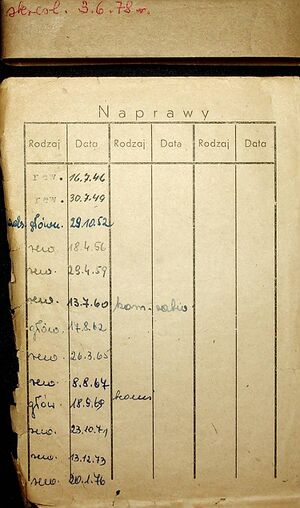 skreśl. 3.6.78 r.
Naprawy
Rodzaj Data Rodzaj Data Rodzaj Data
rew. 16.7.46
rew. 30.7.49
główn. 29.10.52
rew. 18.4.56
rew. 29.4.59
rew. 13.7.60 kom. radio
głów. 17.8.62
rew. 26.3.65
rew. 8.8.67
głów. 18.9.69
rew. 23.10.71
rew. 13.12.73
rew. 20.1.76